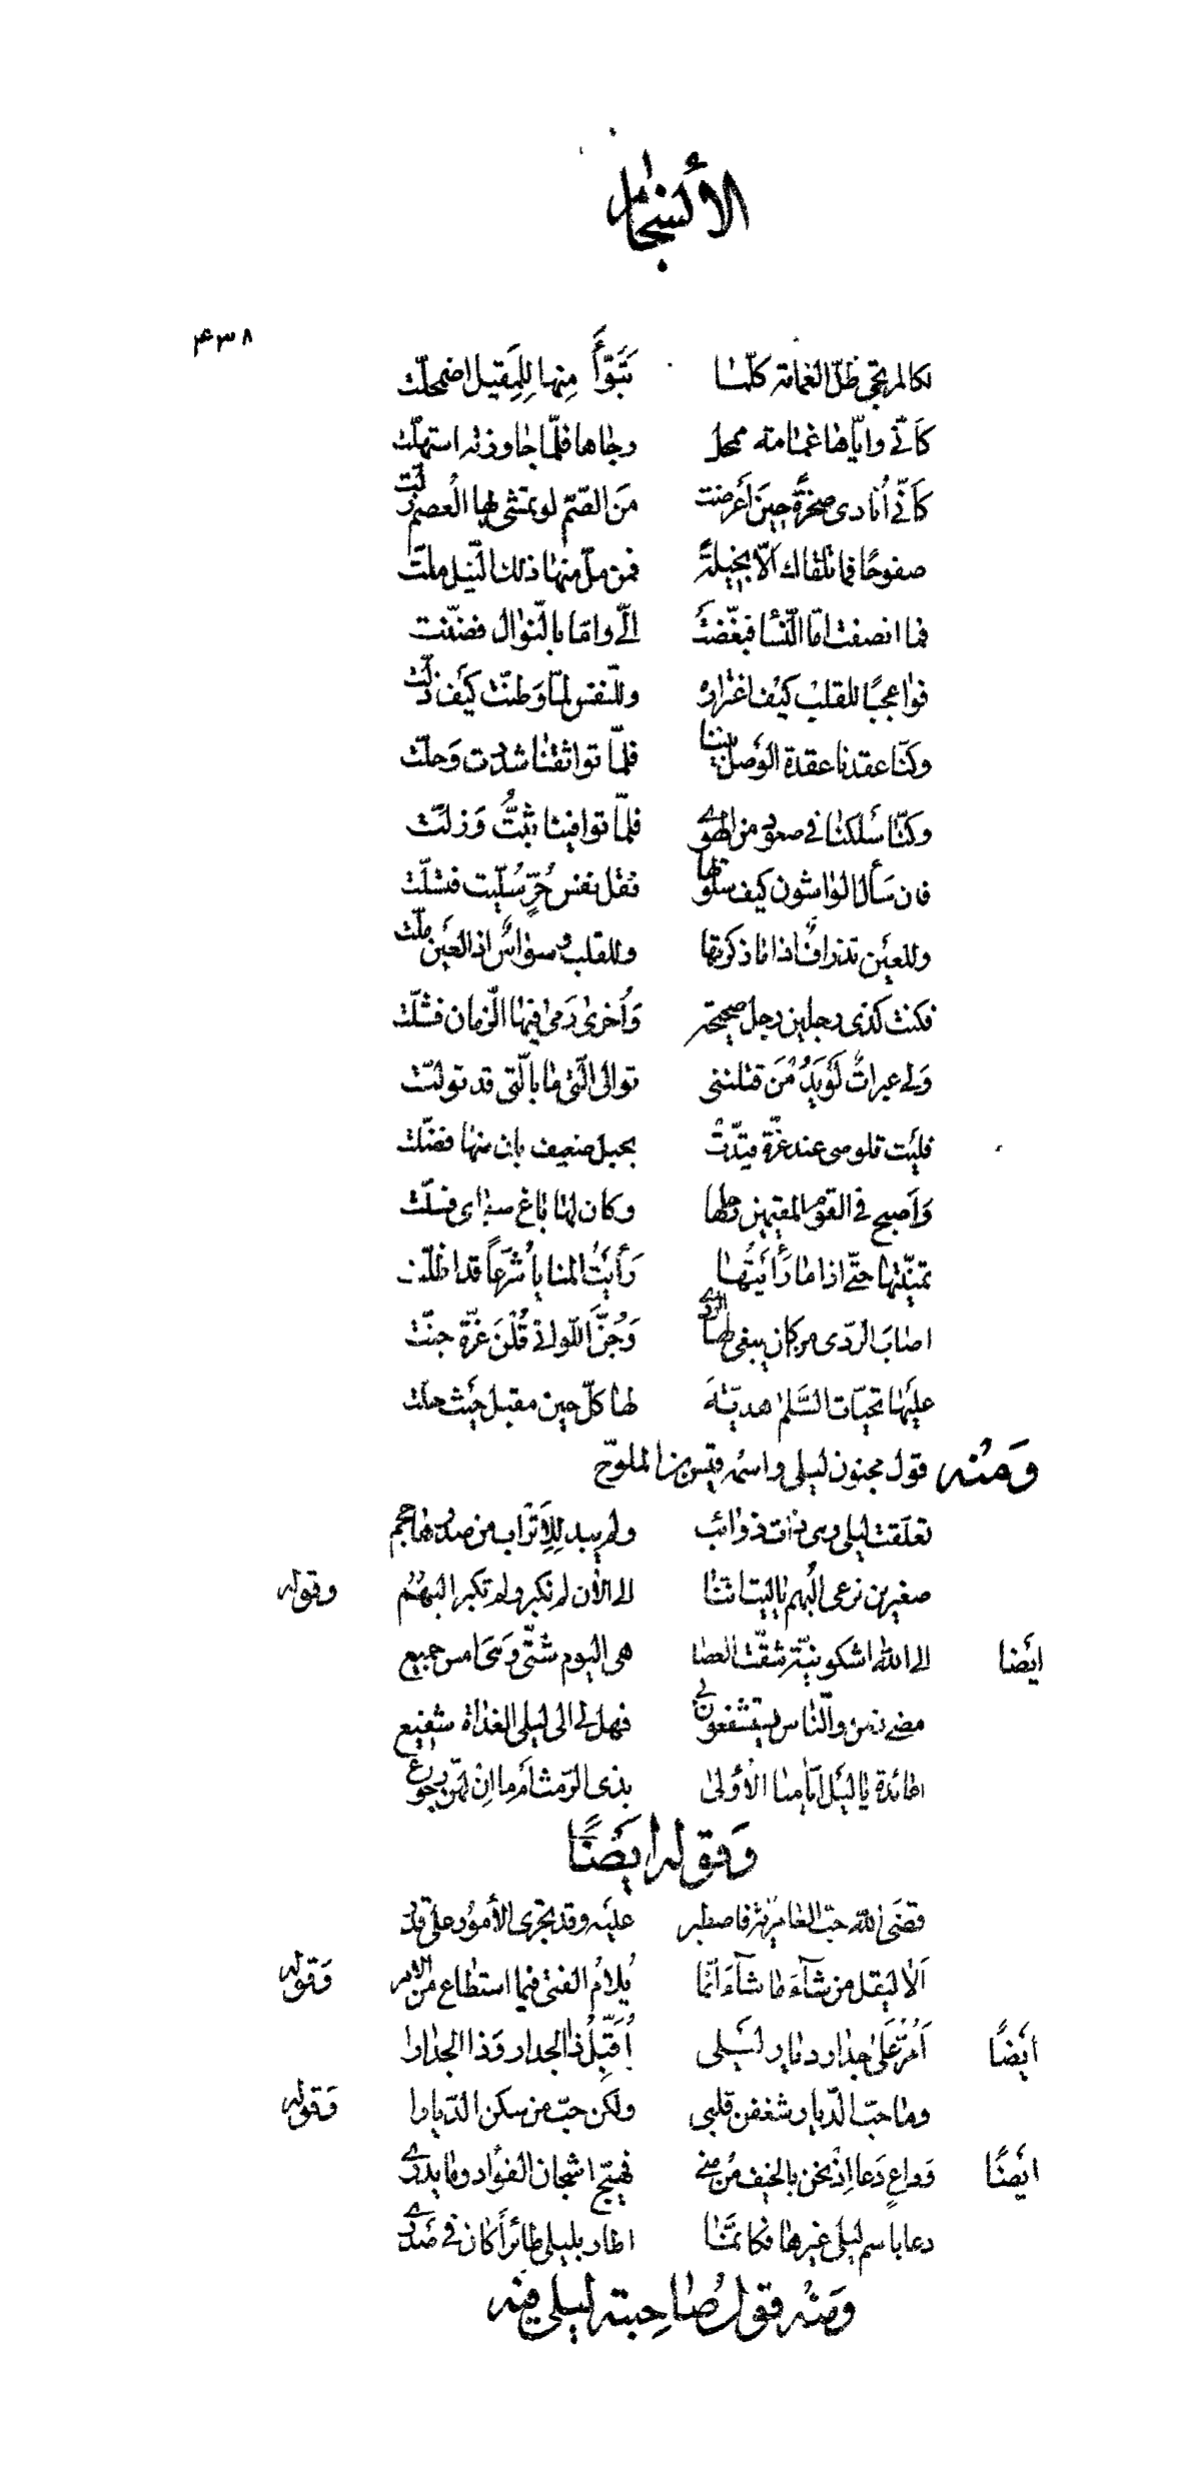 الأنسجام
۴۳۸
لكالمرتجى ظلّ الغمامة كلّما تَبَوَّأَ مِنها لِلمَقيل اضمحلّت
كَأنّي وايّاها غمامة ممحل رجاها فلمّا جاوزته استهلّت
كَأنّي أُنادى صخرَةً حينَ أَعرضت مَن الصّمّ لو تمشى بها العُصم زلّت
صفوحًا فما تلقاك الّا بخيلةً فمن ملّ منها ذلك النّيل ملّت
فما انصفت امّا النّسا فبغّضتَ الّى وامّا بالنّوال فضنّنت
فواعجبًا للقلب كيف اغتراره وللنّفس لمّا وَطنّت كيَف ذلّت
وكنّا عقدنا عقدة الوَصل بيننا فلمّا تواثقنا شددت وَحلّت
وكنّا سَلكنا في صعود من الهوى فلمّا توافينا ثبتُّ وَزلّت
فان سَأل الواشون كيف سلوتها فقل نفس حُرٍّ سُلّيت فسلّت
وللعيَن تذرافٌ اذا ما ذكرتها وللقلب وسواسٌ اذ العيَن ملّت
فكنت كذى رجلين رجل صحيحة وَأُخرى رَمى فيها الزّمان فشلّت
وَلى عبراتٌ لَو يَدُمنَ قتلننى توالى الّتى ما بالّتى قد تولّت
فليَت قلوصى عند عزّة قيّدتْ بحبل ضعيف بان منها فضلّت
وَأصبح في القوم المقيمين رحلها وكان لها باغ سواى فبلّت
تمنيّتها حتّى اذا ما رَأيَتُها رَأيَتُ المنايا شُرّعاً قد اظلّت
اصابَ الرّدى من كان يبغى لها الرّدى وَجُنَّ اللّواتي قُلنَ عزّة جنّت
عليَها تحيّات السَّلام هديّةَ لها كلّ حين مقبل حيَث حلّت
وَمنه قول مجنون ليلى واسمه قيس بن الملوّح
تعلّقت ليلى وهى ذات ذوائب ولم يبد لِلأَتْراب من صدرها حجم
صغيرين نرعى البُهم ياليت انّنا الى الأن لم نكبر ولم تكبر البُهم وقوله
ايَضا الى الله اشكو نيّة شقّت العصا هى اليوم شتّى وَهى امس جميع
مضى زمن والنّاس يستشفعون بي فهل لى الى ليلى الغداة شفيع
اعائدة يا ليَل ايّامنا الأولى بذى الرّمث ام ما انْ لهنّ رجوعُ
وَقوله ايَضًا
قضَى الله حبّ العامريّة فاصطبر عليَه وقد تجرى الأموُر على قدر
اَلا ليقل من شآءَ ما شآءَ انّما يُلامُ الفتى فيما استطاع من الامر وَقوله
ايَضًا اَمُرّ عَلى جدار ديار ليَلى اُقبِّلُ ذا الجدار وَذا الجدارا
وما حبّ الدّيار شغفن قلبى ولكن حبّ من سكن الدّيارا وَقوله
ايَضًا وَداعٍ دَعا اِذْ نحن بالخيف مُن منى فهيّج اشجان الفؤاد وما يدرى
دعا باسم ليلى غيرها فكانّمَا اطار بليلى طائراً كان في صَدرى
ومَنه قول صُاحِبته ليلى فيه